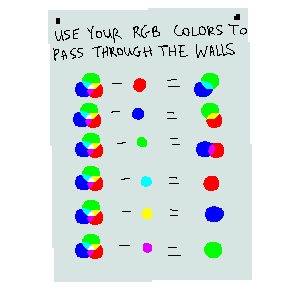 USE YOUR RGB COLORS TO
PASS THROUGH THE WALLS
- =
- =
- =
- =
- =
- =